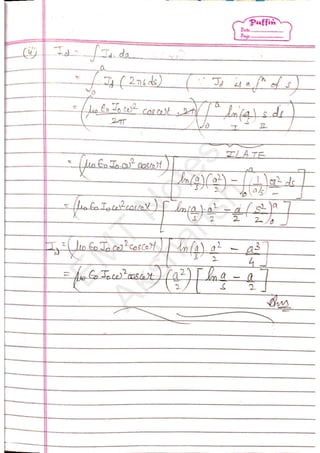 Puffin
Date
Page
(4) Id = ∫ Jd. da
= ∫₀ᵃ Jd (2πs ds) (∵ Jd is a fⁿ of s)
= (μ₀ ε₀ I₀ ω² cosωt . 2π / 2π) (∫₀ᵃ ln(a/s) s ds)
I II
ILATE
= (μ₀ ε₀ I₀ ω² cosωt) [ ln(a/s) (a²/2) − ∫₀ᵃ (1/(a/s)) a²/2 ds ]
= (μ₀ ε₀ I₀ ω² cosωt) [ ln(a/s) a²/2 − a/2 (s²/2)₀ᵃ ]
Id = (μ₀ ε₀ I₀ ω² cosωt) [ ln(a/s) a²/2 − a³/4 ]
= (μ₀ ε₀ I₀ ω² cosωt) (a²/2) [ ln a/s − a/2 ]
Ans
EMT Notes